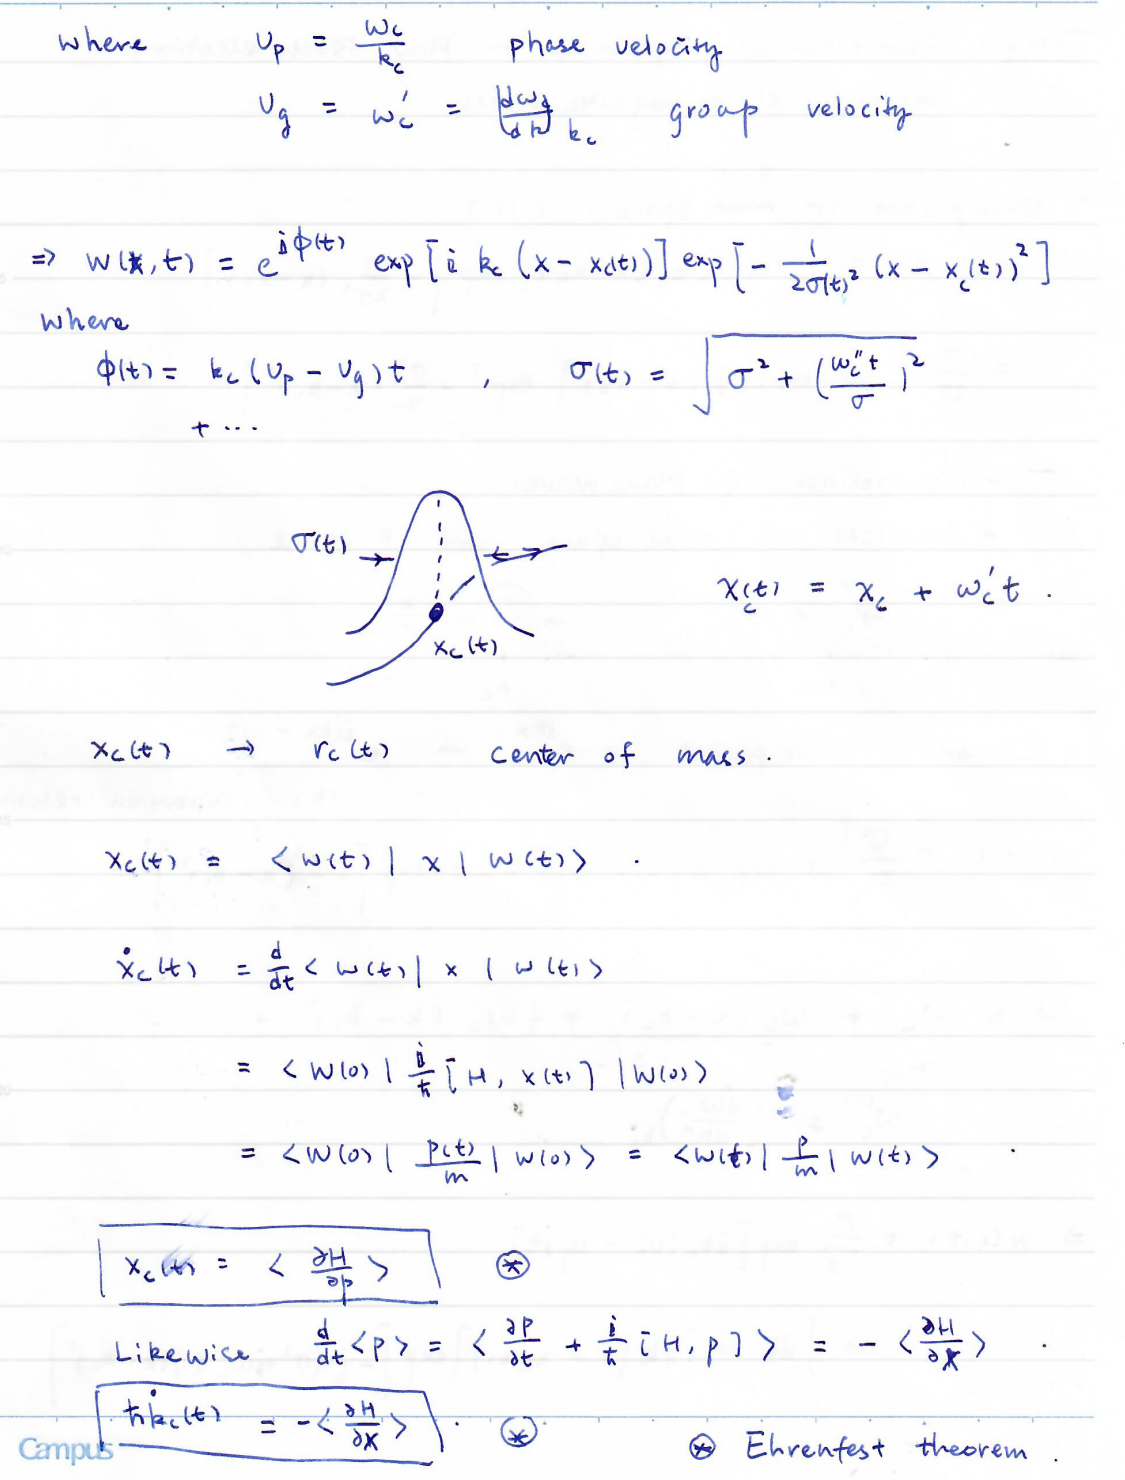 where v_p = ω_c / k_c phase velocity
v_g = ω_c' = (dω/dk)_{k_c} group velocity
⇒ W(x,t) = e^{iϕ(t)} exp[i k_c (x - x_c(t))] exp[- 1/(2σ(t)²) (x - x_c(t))²]
where
ϕ(t) = k_c (v_p - v_g) t , σ(t) = √(σ² + (ω_c'' t / σ)²)
+ ...
σ(t)
x_c(t) = x_c + ω_c' t .
x_c(t)
x_c(t) → r_c(t) center of mass .
x_c(t) = <W(t) | x | W(t)> .
ẋ_c(t) = d/dt <W(t) | x | W(t)>
= <W(0) | i/ħ [H, x(t)] | W(0)>
= <W(0) | p(t)/m | W(0)> = <W(t) | p/m | W(t)> .
x_c(t) = <∂H/∂p> ⊛
Likewise d/dt <p> = <∂p/∂t + i/ħ [H, p]> = - <∂H/∂x> .
ħk̇_c(t) = - <∂H/∂x> . ⊛
Campus
⊛ Ehrenfest theorem .